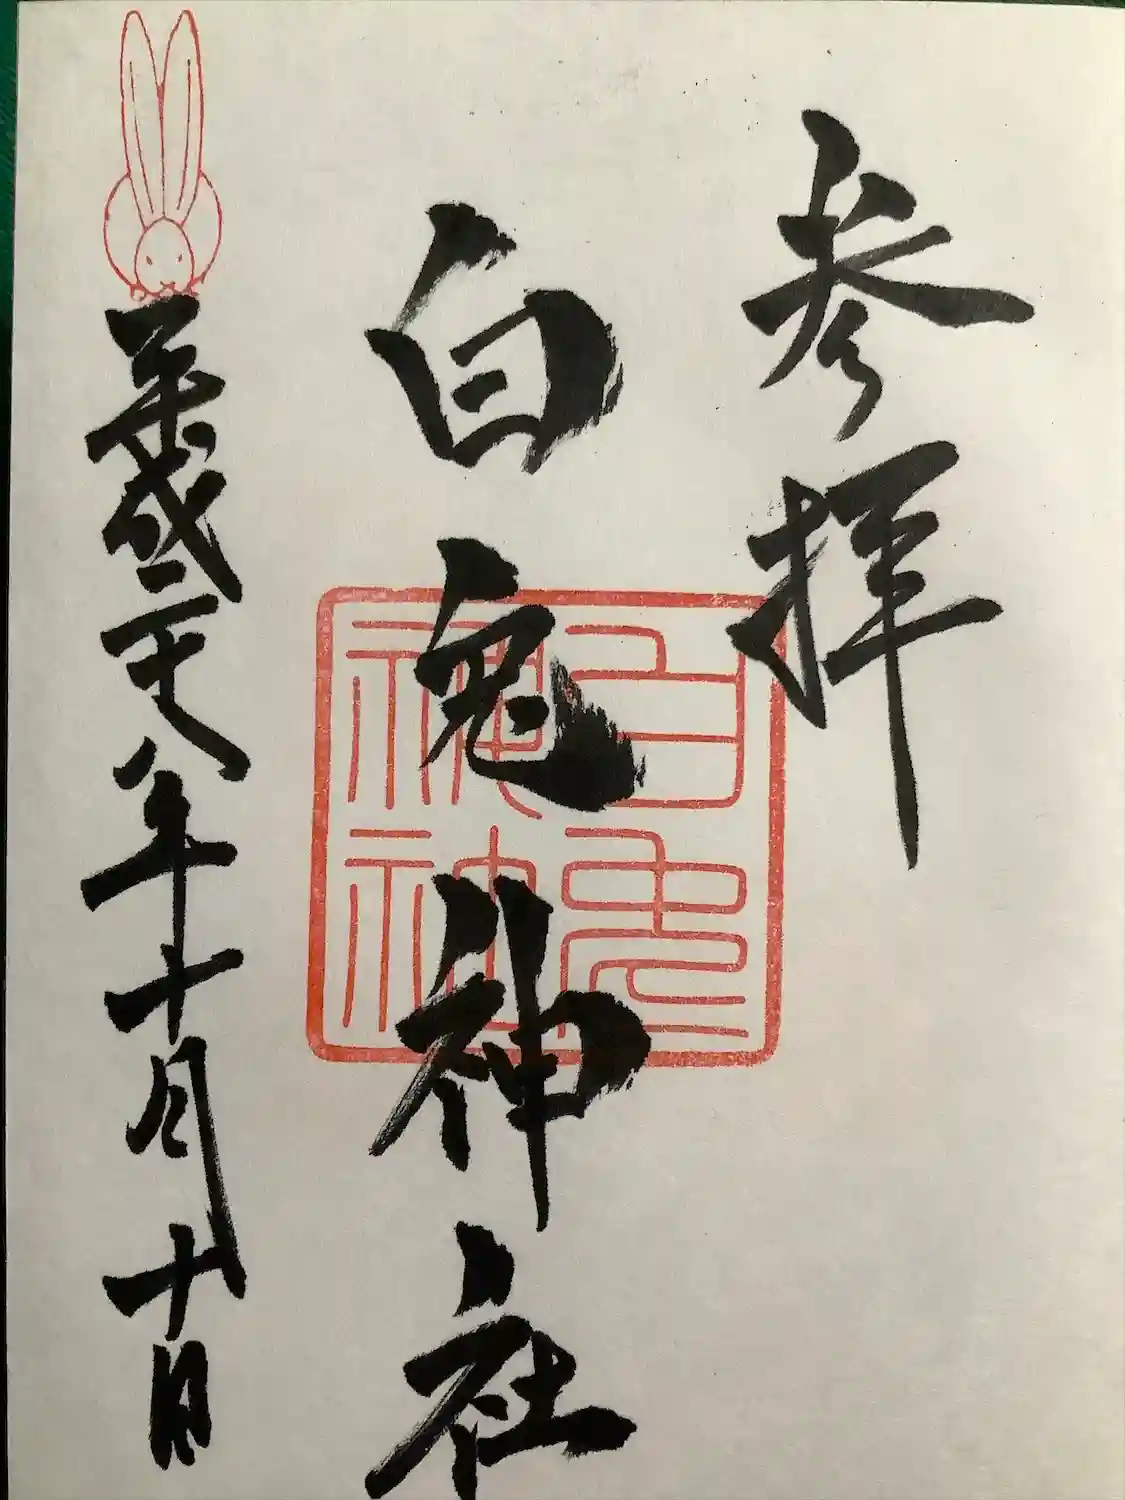 参拝
白兎神社
平成二十八年十月十日
白兎神社